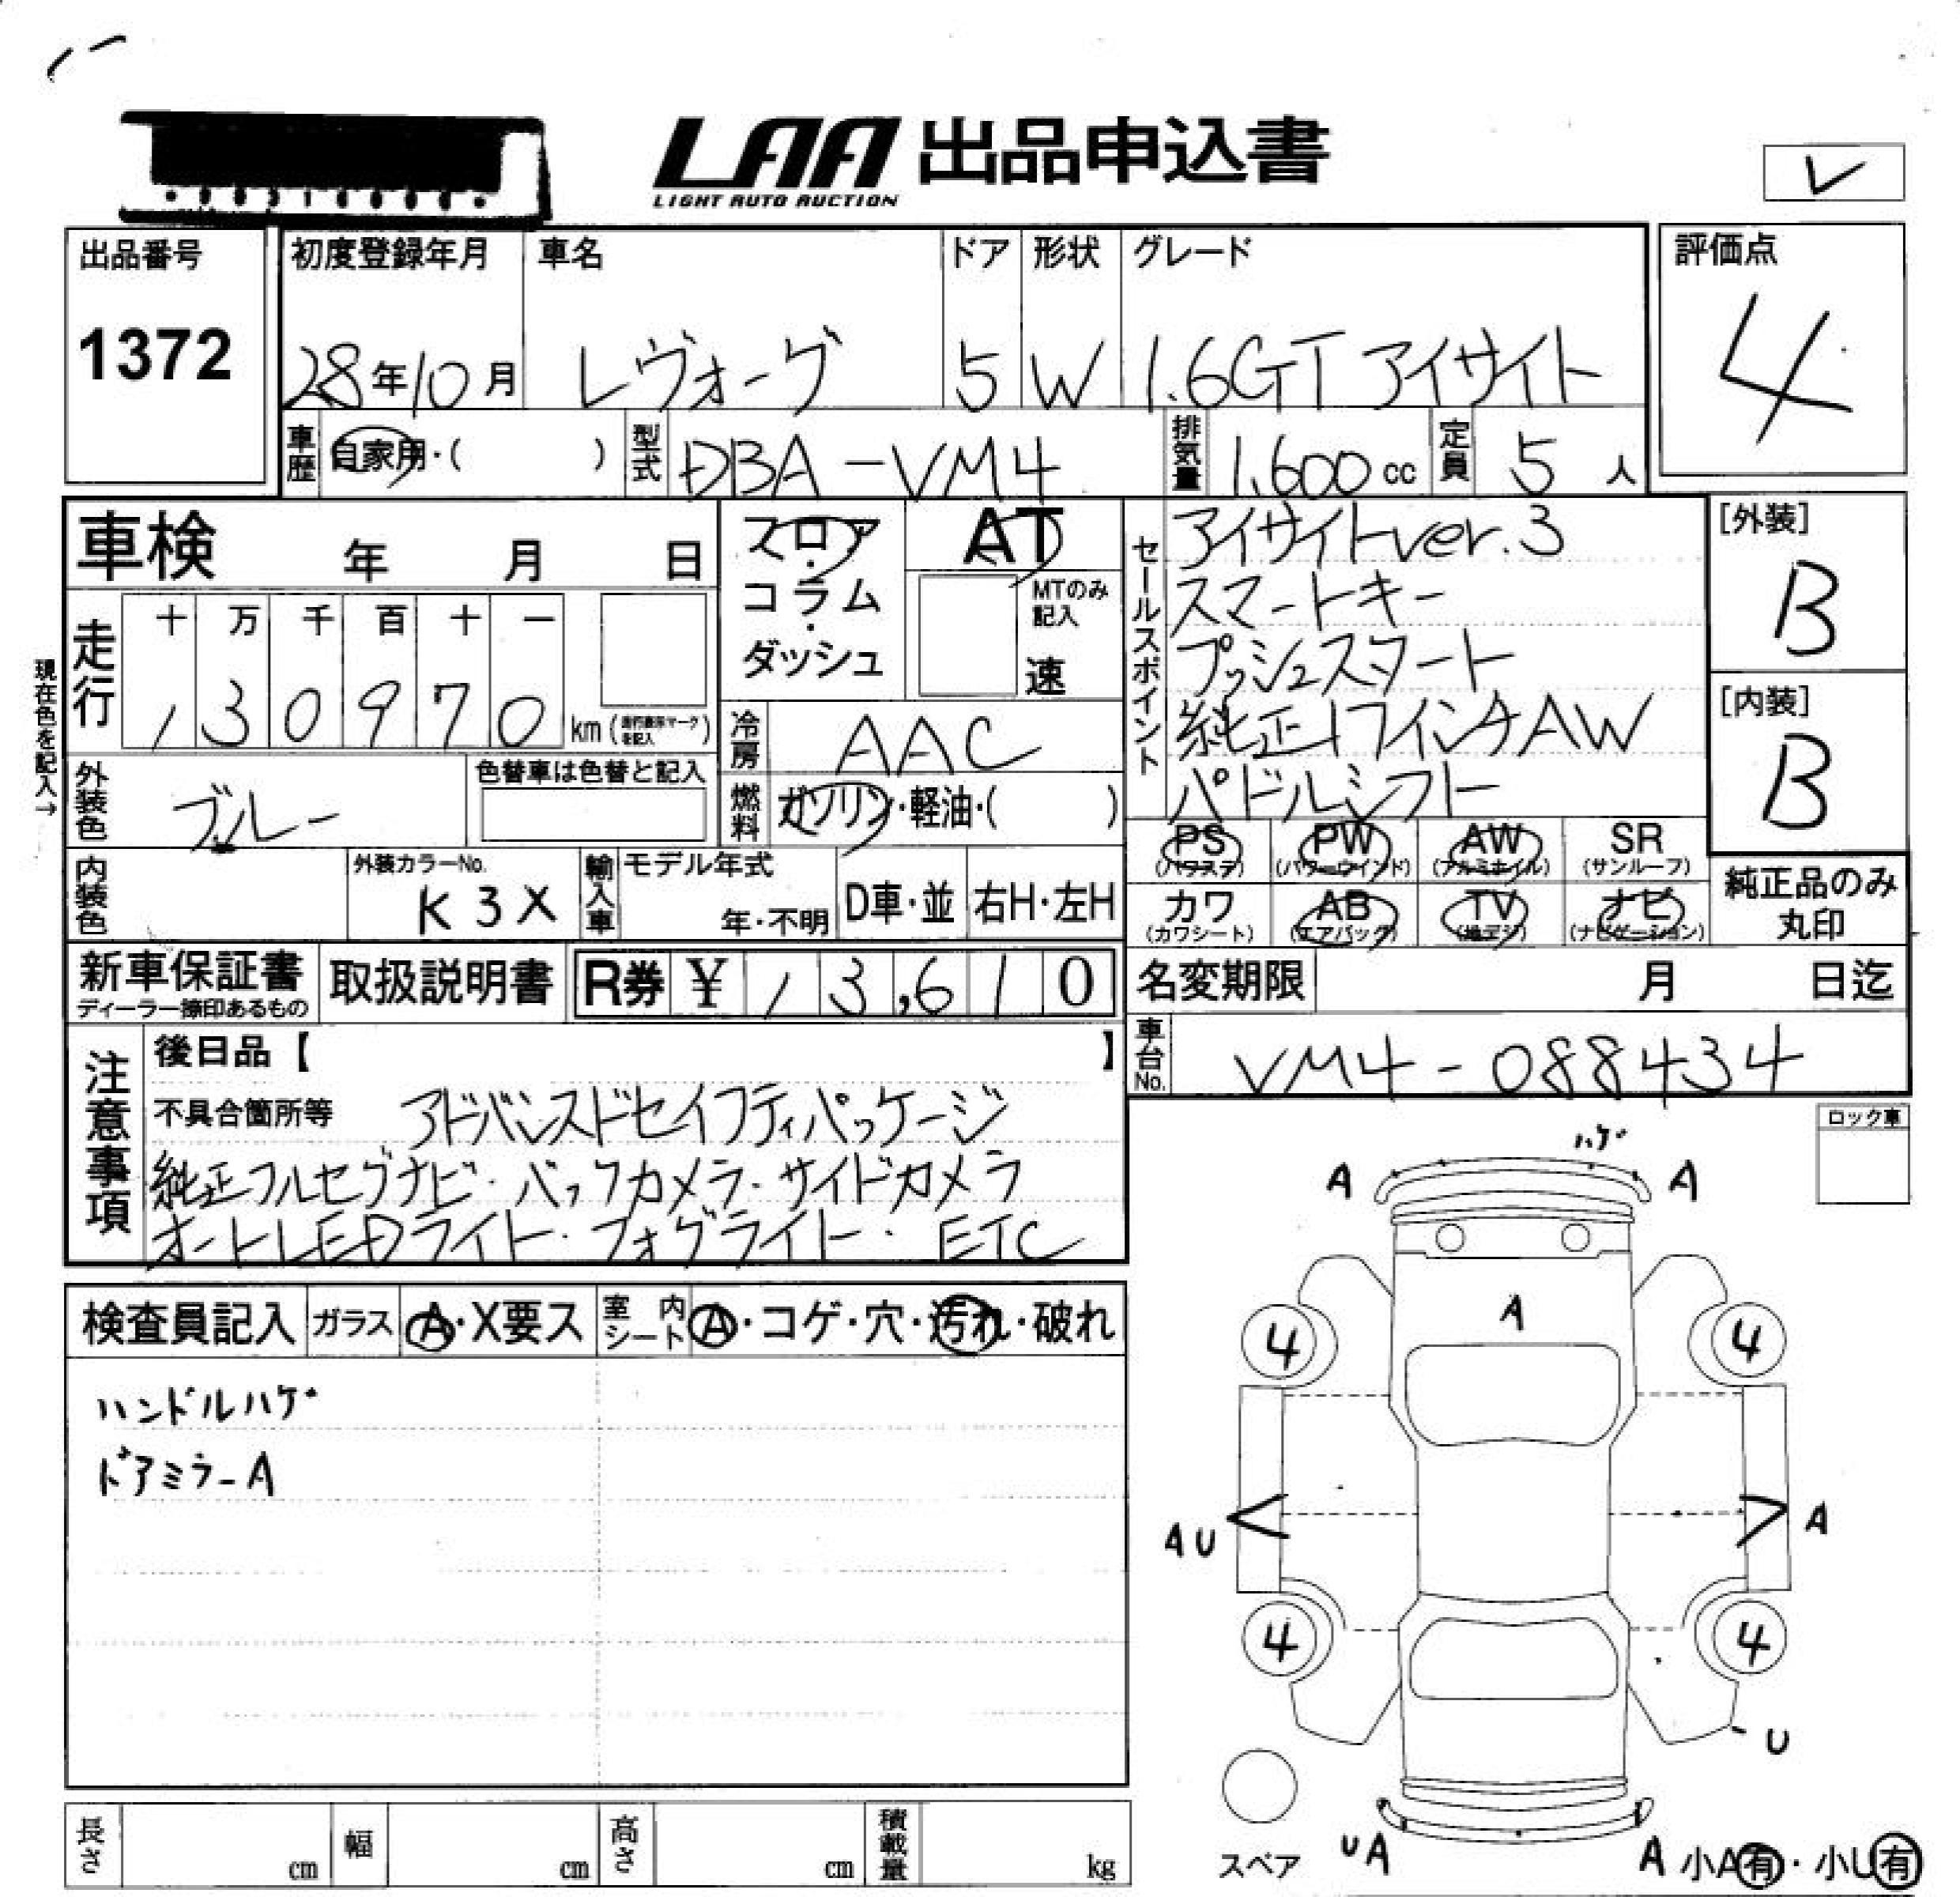 LAA 出品申込書
LIGHT AUTO AUCTION
レ
出品番号 初度登録年月 車名 ドア 形状 グレード 評価点
1372 28年10月 レヴォーグ 5 W 1.6GT アイサイト 4
車歴 自家用・( ) 型式 DBA-VM4 排気量 1,600cc 定員 5人
車検 年 月 日
フロア・コラム・ダッシュ
AT
MTのみ記入
速
セールスポイント
アイサイトver.3
スマートキー
プッシュスタート
純正17インチAW
パドルシフト
[外装]
B
[内装]
B
現在色を記入→
走行 十 万 千 百 十 一
1 3 0 9 7 0 km (走行表示マークを記入)
冷房 AAC
燃料 ガソリン・軽油・( )
外装色 ブルー 色替車は色替と記入
内装色 外装カラーNo. K3X 輸入車 モデル年式 年・不明 D車・並 右H・左H
PS (パワステ) PW (パワーウインド) AW (アルミホイル) SR (サンルーフ)
カワ (カワシート) AB (エアバック) TV (地デジ) ナビ (ナビゲーション)
純正品のみ丸印
新車保証書 取扱説明書 R券 ¥ 13,610
ディーラー捺印あるもの
名変期限 月 日迄
車台No. VM4-088434
注意事項
後日品【 】
不具合箇所等 アドバンスドセイフティパッケージ
純正フルセグナビ・バックカメラ・サイドカメラ
オートLEDライト・フォグライト・ETC
ロック車
検査員記入 ガラス A・X要ス 室内シート A・コゲ・穴・汚れ・破れ
ハンドルハゲ
ドアミラーA
ハゲ
A A
A
4 4
AU A
4 4
U
スペア UA A 小A有・小U有
長さ cm 幅 cm 高さ cm 積載量 kg